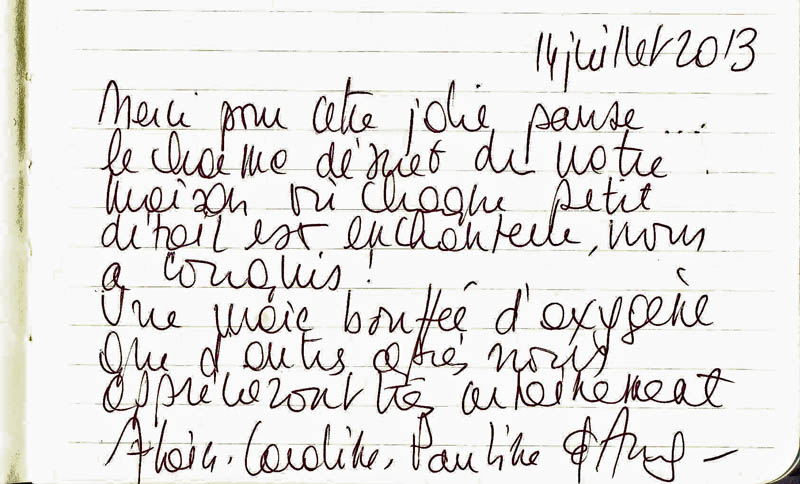 14 juillet 2013
Merci pour cette jolie pause ...
le charme désuet de votre
maison où chaque petit
détail est enchanteur, nous
a conquis !
Une vraie bouffée d'oxygène
que d'autres après nous
apprécieront très certainement
Alain, Caroline, Pauline &